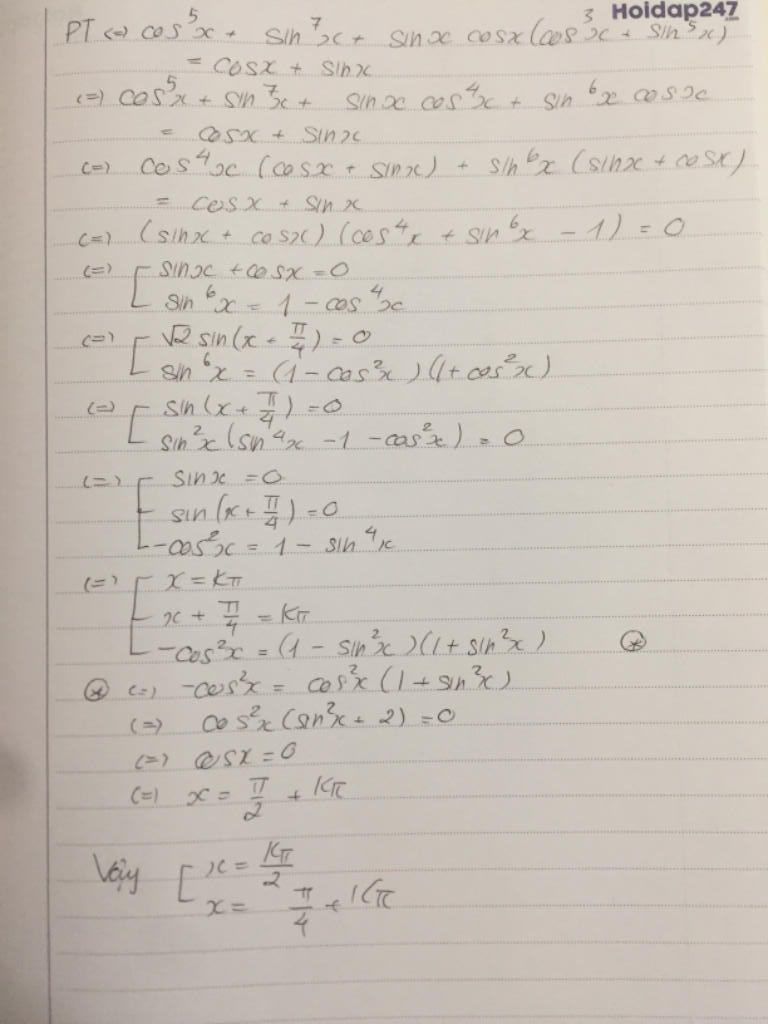 Hoidap247
PT <=> cos⁵x + sin⁷x + sinx cosx(cos³x + sin⁵x)
= cosx + sinx
<=> cos⁵x + sin⁷x + sinx cos⁴x + sin⁶x cosx
= cosx + sinx
<=> cos⁴x (cosx + sinx) + sin⁶x (sinx + cosx)
= cosx + sinx
<=> (sinx + cosx)(cos⁴x + sin⁶x - 1) = 0
<=> [ sinx + cosx = 0
sin⁶x = 1 - cos⁴x
<=> [ √2 sin(x + π/4) = 0
sin⁶x = (1 - cos²x)(1 + cos²x)
<=> [ sin(x + π/4) = 0
sin²x (sin⁴x - 1 - cos²x) = 0
<=> [ sinx = 0
sin(x + π/4) = 0
-cos²x = 1 - sin⁴x
<=> [ x = kπ
x + π/4 = kπ
-cos²x = (1 - sin²x)(1 + sin²x) (*)
(*) <=> -cos²x = cos²x (1 + sin²x)
<=> cos²x (sin²x + 2) = 0
<=> cosx = 0
<=> x = π/2 + kπ
Vậy [ x = kπ/2
x = π/4 + kπ